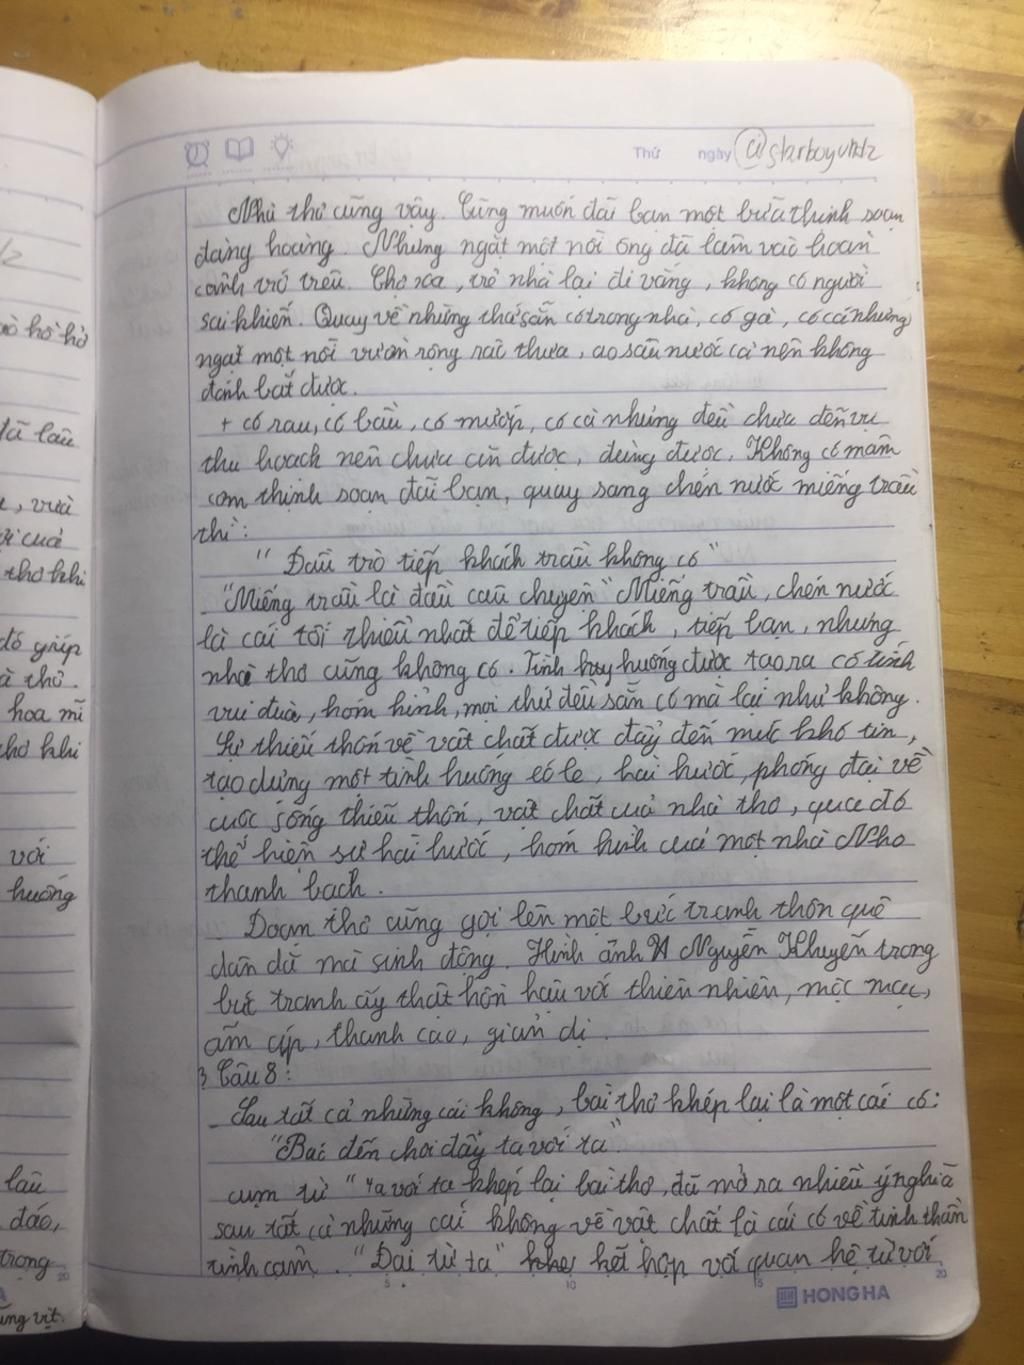 Thứ ngày @starboyvhh2
Nhà thơ cũng vậy. Cũng muốn đãi bạn một bữa thịnh soạn
đàng hoàng. Nhưng ngặt một nỗi ông đã lâm vào hoàn
cảnh trớ trêu. Chợ xa, trẻ nhà lại đi vắng, không có người
sai khiến. Quay về những thứ sẵn có trong nhà, có gà, có cá nhưng
ngặt một nỗi vườn rộng rào thưa, ao sâu nước cả nên không
đánh bắt được.
+ có rau, có bầu, có mướp, có cà nhưng đều chưa đến vụ
thu hoạch nên chưa ăn được, dùng được. Không có mâm
cơm thịnh soạn đãi bạn, quay sang chén nước miếng trầu
thì:
"Đầu trò tiếp khách trầu không có"
"Miếng trầu là đầu câu chuyện" Miếng trầu, chén nước
là cái tối thiểu nhất để tiếp khách, tiếp bạn, nhưng
nhà thơ cũng không có. Tình huy huống được tạo ra có tính
vui đùa, hóm hỉnh, mọi thứ đều sẵn có mà lại như không.
Sự thiếu thốn về vật chất được đẩy đến mức khó tin,
tạo dựng một tình huống éo le, hài hước, phóng đại về
cuộc sống thiếu thốn, vật chất của nhà thơ, qua đó
thể hiện sự hài hước, hóm hỉnh của một nhà Nho
thanh bạch.
Đoạn thơ cũng gợi lên một bức tranh thôn quê
dân dã mà sinh động. Hình ảnh Nguyễn Khuyến trong
bức tranh ấy thật hồn hậu với thiên nhiên, mộc mạc,
ấm áp, thanh cao, giản dị.
3 Câu 8:
Sau tất cả những cái không, bài thơ khép lại là một cái có:
"Bác đến chơi đây ta với ta"
cụm từ "ta với ta khép lại bài thơ, đã mở ra nhiều ý nghĩa
sau tất cả những cái không về vật chất là cái có về tinh thần
tình cảm. "Đại từ ta" kết hợp với quan hệ từ với
5 10 15 20
HONG HA
ò hồ hở
đã lâu
, vừa
của
thơ khi
đó giúp
à thơ.
hoa mĩ
thơ khi
với
huống
lâu
đáo,
trọng
20
vịt.